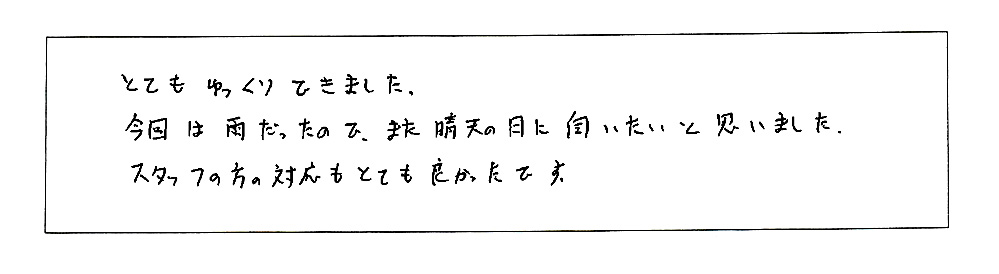 とてもゆっくりできました。
今回は雨だったので、また晴天の日に伺いたいと思いました。
スタッフの方の対応もとても良かったです。